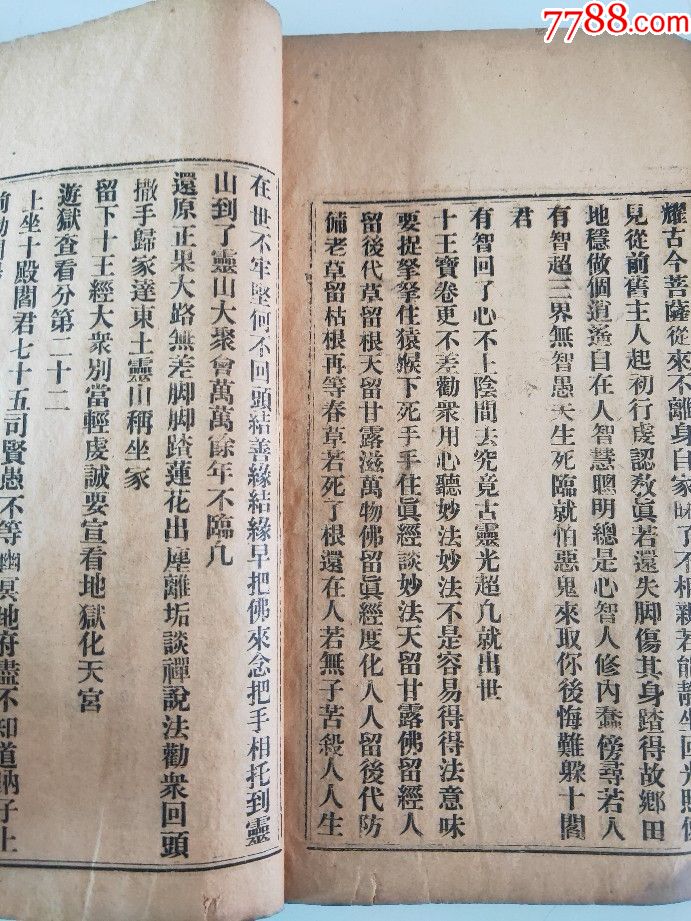 7788.com
耀古今菩薩從來不離身自家昧了不相親若能靜坐回光照
見從前舊主人起初行虔認教眞若還失脚傷其身踏得故鄉田
地穩做個逍遙自在人智慧聰明總是心智人修內蠢傍尋若人
有智超三界無智愚夫生死臨就怕惡鬼來取你後悔難躲十閻
君
有智回了心不上陰間去究竟古靈光超凡就出世
十王寶卷更不差勸衆用心聽妙法妙法不是容易得得法意味
要捉拏拏住猿猴下死手手住眞經談妙法天留甘露佛留經人
留後代草留根天留甘露滋萬物佛留眞經度化人人留後代防
備老草留枯根再等春草若死了根還在人若無子苦殺人人生
在世不牢堅何不回頭結善緣結緣早把佛來念把手相托到靈
山到了靈山大聚會萬萬餘年不臨凡
還原正果大路無差脚脚踏蓮花出塵離垢談禪說法勸衆回頭
撒手歸家達東土靈山稱坐家
留下十王經大衆別當輕虔誠要宣看地獄化天宮
遊獄查看分第二十二
上坐十殿閻君七十五司賢愚不等幽冥地府盡不知道納子上